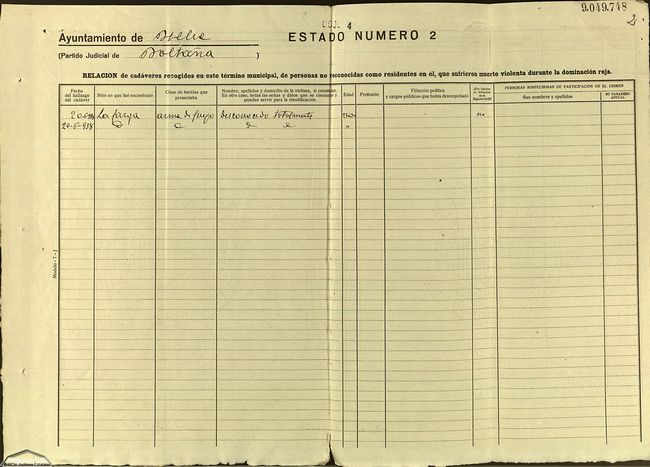 9.049.748
4
2
Ayuntamiento de Bielsa
ESTADO NUMERO 2
(Partido Judicial de Boltaña)
RELACION de cadáveres recogidos en este término municipal, de personas no reconocidas como residentes en él, que sufrieron muerte violenta durante la dominación roja.
Fecha del hallazgo del cadáver
Sitio en que fué encontrado
Clase de heridas que presentaba
Nombre, apellidos y domicilio de la víctima, si constase. En otro caso, todas las señas y datos que se conocen y puedan servir para la identificación.
Edad
Profesión
Filiación política y cargos públicos que había desempeñado
PERSONAS SOSPECHOSAS DE PARTICIPACIÓN EN EL CRIMEN
Sus nombres y apellidos
SU PARADERO ACTUAL
La farga arma de fuego desconocido totalmente
20-6-938
Modelo - T - J